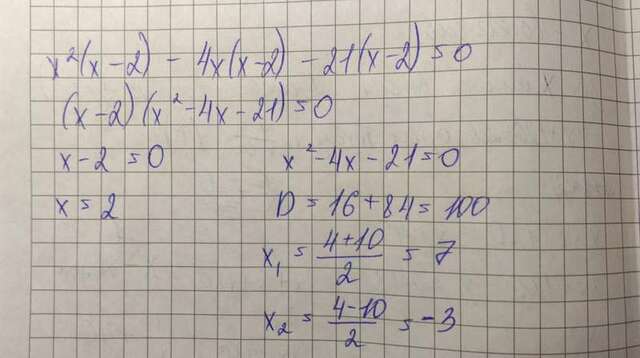 x²(x-2) - 4x(x-2) - 21(x-2) = 0
(x-2)(x²-4x-21) = 0
x-2 = 0
x = 2
x²-4x-21=0
D = 16+84 = 100
x₁ = (4+10)/2 = 7
x₂ = (4-10)/2 = -3